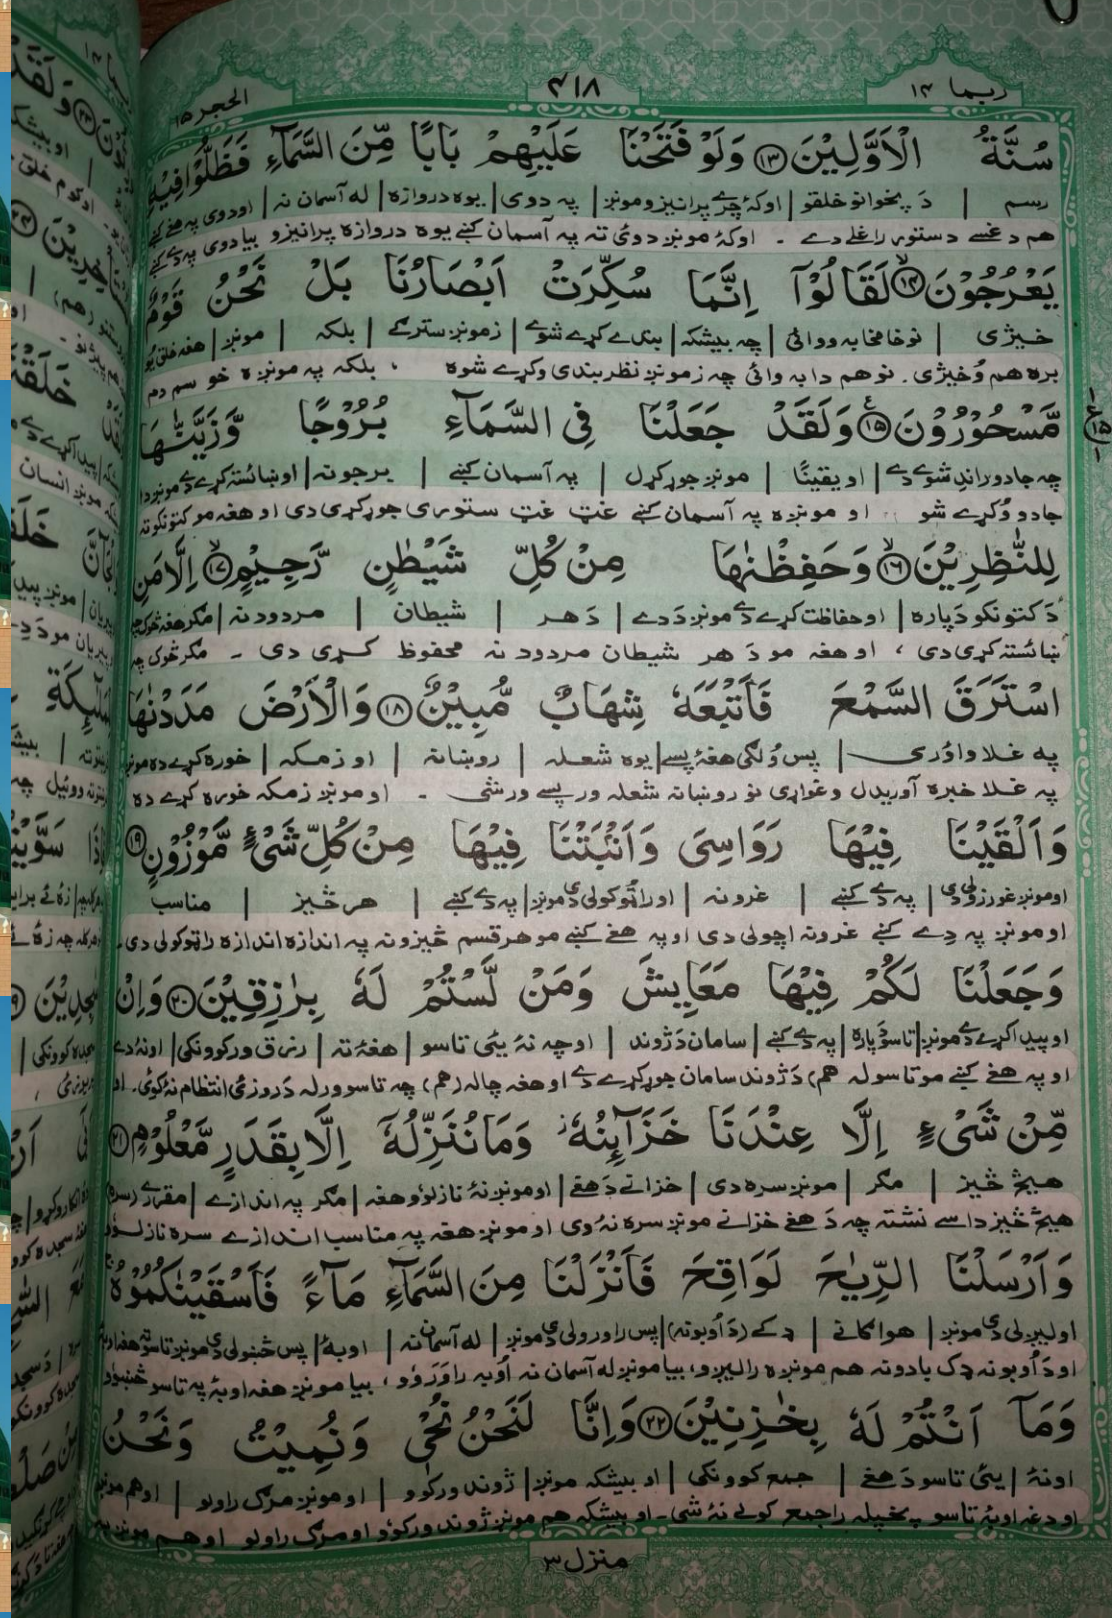 ربما ۱۴
۴۱۸
الحجر ۱۵
سُنَّةُ الْاَوَّلِيْنَ ۝۱۳ وَلَوْ فَتَحْنَا عَلَيْهِمْ بَابًا مِّنَ السَّمَآءِ فَظَلُّوْا فِيْهِ
رسم | دَ پخوانو خلقو | اوکۀ چرے پرانیزو مونږ | په دوی | یوه دروازه | له آسمان نه | اودوی په
هم دغسے دستور راغلے دے ۔ اوکۀ مونږ دوئ ته په آسمان کښے یوه دروازه پرانیزو بیا دوی په دے کښے
يَعْرُجُوْنَ ۝۱۴ لَقَالُوْٓا اِنَّمَا سُكِّرَتْ اَبْصَارُنَا بَلْ نَحْنُ قَوْمٌ
خیژی | نوخامخا به ووائی | چه بیشکه | بندے کړے شوے | زمونږ سترګے | بلکه | مونږ | هغه خلق یو
بره هم وُخیژی ۔ نو هم دا به وائی چه زمونږ نظربندی وکړے شوه ، بلکه په مونږه خو سم دم
مَّسْحُوْرُوْنَ ۝۱۵ وَلَقَدْ جَعَلْنَا فِى السَّمَآءِ بُرُوْجًا وَّزَيَّنّٰهَا
چه جادو راباندِ شوے دے | او یقینًا | مونږ جوړ کړل | په آسمان کښے | برجونه | او ښائسته کړے دے مونږ دا
جادو وُکړے شو ۔ او مونږه په آسمان کښے غټ غټ ستوری جوړ کړی دی او هغه مو کتونکو ته
لِلنّٰظِرِيْنَ ۝۱۶ وَحَفِظْنٰهَا مِنْ كُلِّ شَيْطٰنٍ رَّجِيْمٍ ۝۱۷ اِلَّا مَنِ
دَ کتونکو دَپاره | او حفاظت کړے دے مونږ دَ دے | دَ هر | شیطان | مردود نه | مګر هغه څوک چه
ښائسته کړی دی ، او هغه مو دَ هر شیطان مردود نه محفوظ کړی دی ۔ مګر څوک چه
اسْتَرَقَ السَّمْعَ فَاَتْبَعَهٗ شِهَابٌ مُّبِيْنٌ ۝۱۸ وَالْاَرْضَ مَدَدْنٰهَا
په غلا واؤری | پس وُلګی هغۀ پسے | یوه شعله | روښانه | او زمکه | خوره کړے ده مونږ
په غلا خبره آوریدل وغواړی نو روښانه شعله ورپسے ورشی ۔ او مونږ زمکه خوره کړے ده
وَاَلْقَيْنَا فِيْهَا رَوَاسِىَ وَاَنْۢبَتْنَا فِيْهَا مِنْ كُلِّ شَىْءٍ مَّوْزُوْنٍ ۝۱۹
اومونږ غورزولی دی | په دے کښے | غرونه | اوراټوکولی دی مونږ | په دے کښے | هر څیز | مناسب
او مونږ په دِے کښے غرونه اچولی دی او په هغے کښے مو هر قسم څیزونه په اندازه اندازه راټوکولی دی۔
وَجَعَلْنَا لَكُمْ فِيْهَا مَعَايِشَ وَمَنْ لَّسْتُمْ لَهٗ بِرٰزِقِيْنَ ۝۲۰ وَاِنْ
اوپیدا کړے دے مونږ | تاسو دَپاره | په دے کښے | سامان دَ ژوند | اوچه نۀ یئی تاسو | هغۀ ته | رزق ورکوونکی | اونۀ دے
او په هغے کښے مو تاسو له (هم) دَ ژوند سامان جوړ کړے دے او هغه چاله (هم) چه تاسو ورله دَ روزئ انتظام نۀ کوئ۔ او
مِّنْ شَىْءٍ اِلَّا عِنْدَنَا خَزَآئِنُهٗ وَمَا نُنَزِّلُهٗٓ اِلَّا بِقَدَرٍ مَّعْلُوْمٍ ۝۲۱
هیڅ څیز | مګر | مونږ سره دی | خزانے دَ هغے | اومونږ نۀ نازلوؤ هغه | مګر په اندازے | مقررے (سره)
هیڅ څیز داسے نشته چه دَ هغے خزانے مونږ سره نۀ وی او مونږ هغه په مناسب اندازے سره نازلوؤ
وَاَرْسَلْنَا الرِّيٰحَ لَوَاقِحَ فَاَنْزَلْنَا مِنَ السَّمَآءِ مَآءً فَاَسْقَيْنٰكُمُوْهُ
اولیږلی دی مونږ | هواګانے | ډکے (دَ اُوبونه) | پس راورولی دی مونږ | له آسمان نه | اوبۀ | پس څښولی دی مونږ تاسو ته هغه اوبۀ
اودَ اُوبو نه ډک بادونه هم مونږه رالیږو، بیا مونږ له آسمان نه اُوبه راوَرَوؤ ، بیا مونږ هغه اوبۀ په تاسو څښوؤ
وَمَآ اَنْتُمْ لَهٗ بِخٰزِنِيْنَ ۝۲۲ وَاِنَّا لَنَحْنُ نُحْىٖ وَنُمِيْتُ وَنَحْنُ
اونۀ | یئی تاسو دَ هغے | جمع کوونکی | او بیشکه مونږ | ژوند ورکوو | او مونږ مرګ راولو | اوهم مونږ
اودغه اوبۀ تاسو پخپله راجمع کولے نۀ شئ۔ او بیشکه هم مونږ ژوند ورکوؤ او مرګ راولو او هم مونږ
منزل ۳